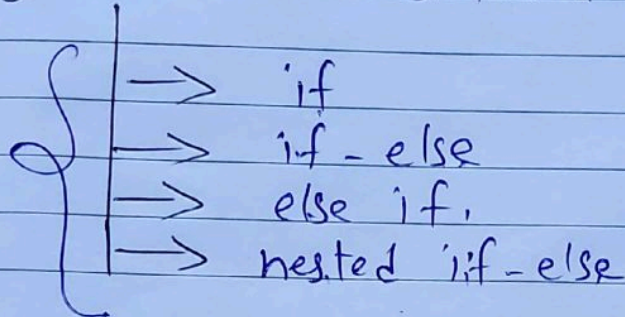 → if
→ if - else
→ else if.
→ nested if - else